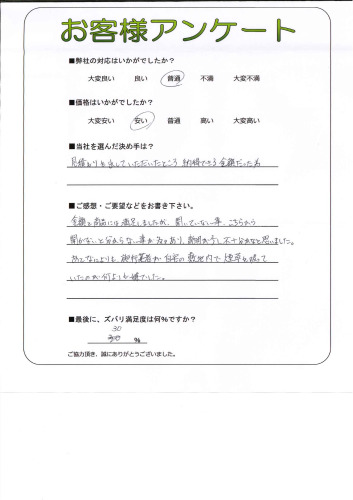 お客様アンケート
■弊社の対応はいかがでしたか?
大変良い 良い 普通 不満 大変不満
■価格はいかがでしたか?
大変安い 安い 普通 高い 大変高い
■当社を選んだ決め手は?
見積もりを出していただいたところ 納得できる金額だった為
■ご感想・ご要望などをお書き下さい。
金額と商品には満足しましたが、聞いていない事、こちらから
聞かないと分からない事が多々あり、説明が少し不十分かなと思いました。
あとなによりも 取付業者が自宅の敷地内で 煙草を吸って
いたのが何よりも嫌でした。
■最後に、ズバリ満足度は何%ですか?
30
%
ご協力頂き、誠にありがとうございました。